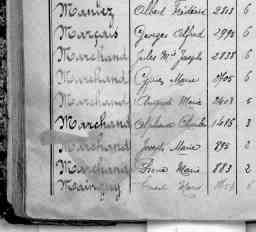 Mantez Albert 2813 6
Marçais Georges Alfred 2990 6
Marchand Jules Mie Joseph 2838 6
Marchand Cyprien Marie 2705 6
Marchand August Marie 6
Marchand Alphonse 1485 3
Marchand Joseph Marie 895 2
Marchand Pierre Marie 883 2
Mainguy Marie 6